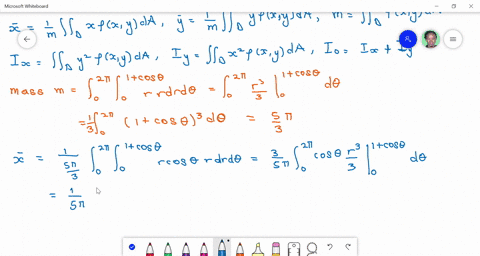 Microsoft Whiteboard
x̄ = 1/m ∬_D x ρ(x,y) dA, ȳ = 1/m ∬_D y ρ(x,y) dA, m = ∬_D ρ(x,y) dA
I_x = ∬_D y² ρ(x,y) dA, I_y = ∬_D x² ρ(x,y) dA, I_0 = I_x + I_y
mass m = ∫_0^{2π} ∫_0^{1+cosθ} r r dr dθ = ∫_0^{2π} r³/3 |_0^{1+cosθ} dθ
= 1/3 ∫_0^{2π} (1+cosθ)³ dθ = 5/3 π
x̄ = 1/(5π/3) ∫_0^{2π} ∫_0^{1+cosθ} r cosθ r dr dθ = 3/5π ∫_0^{2π} cosθ r³/3 |_0^{1+cosθ} dθ
= 1/5π